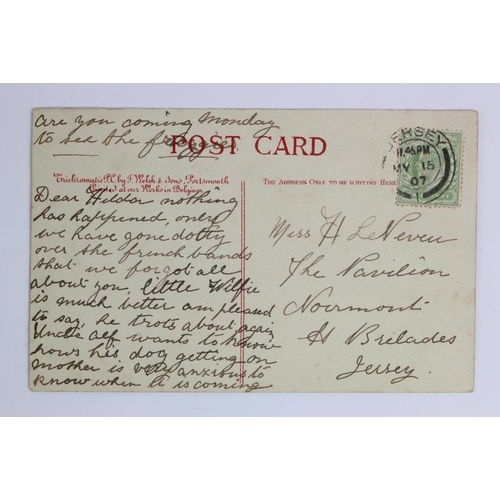 are you coming Monday
to see the froggies
POST CARD
Trichromatic P.C. by J. Welch & Sons, Portsmouth
Printed at our Works in Belgium
THE ADDRESS ONLY TO BE WRITTEN HERE
JERSEY
11.45PM
MY 15
07
Dear Hilda nothing
has happened, only
we have gone dotty
over the french bands
that we forgot all
about you, little Wilfie
is much better am pleased
to say, he trots about again
Uncle alf wants to know
hows his dog getting on
mother is very anxious to
know when it is coming
Miss H LeNeveu
The Pavilion
Noirmont
St Brelades
Jersey.